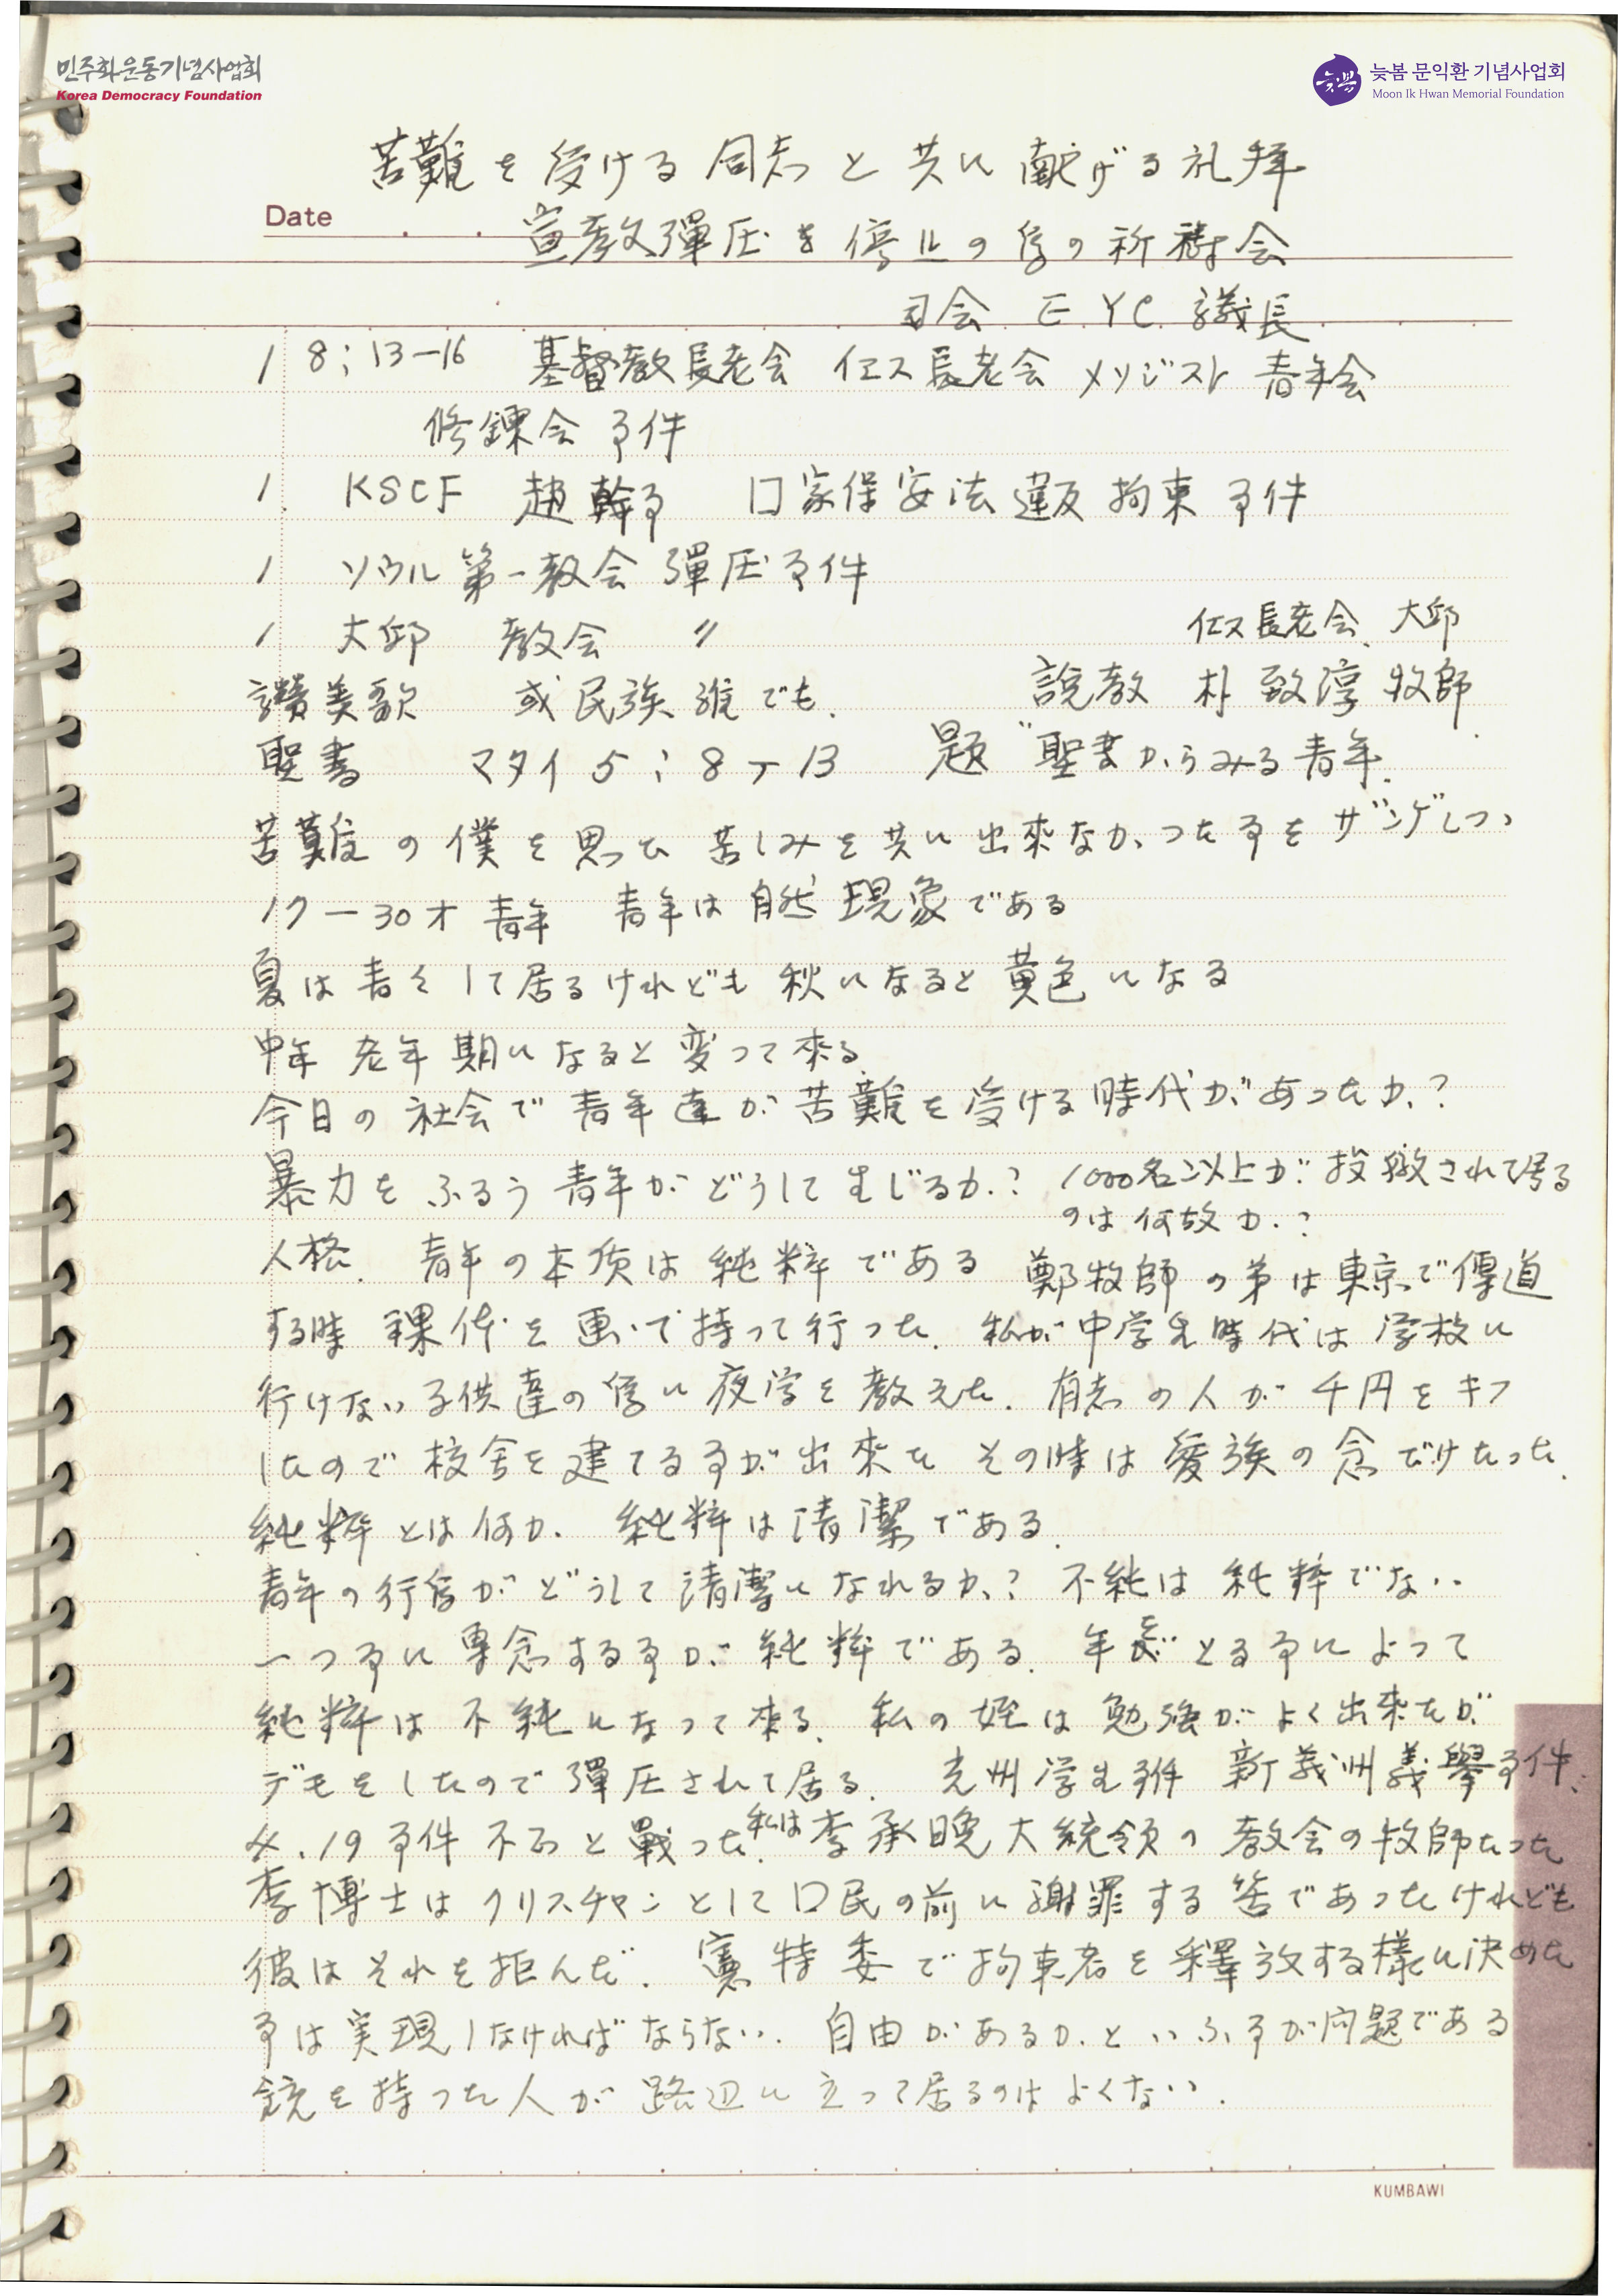 민주화운동기념사업회
Korea Democracy Foundation
늦봄 문익환 기념사업회
Moon Ik Hwan Memorial Foundation
苦難を受ける同志と共に献げる礼拝
Date
宣教彈圧を停止の為の祈禱会
司会 E.Y.C. 議長
1 8:13-16 基督教長老会 イエス長老会 メソジスト 青年会
修錬会事件
1 KSCF 趙幹事 口家保安法違反拘束事件
1 ソウル第一教会彈圧事件
1 大邱 教会 〃
イエス長老会 大邱
讃美歌 或民族誰でも. 説教 朴致淳牧師
聖書 マタイ5:8-13 題"聖書からみる青年.
苦難の僕を思ひ苦しみを共に出來なかつた事をザンゲしつゝ
17-30才青年 青年は自然現象である
夏は青々して居るけれども秋になると黄色になる
中年老年期になると変って來る.
今日の社会で青年達が苦難を受ける時代があったか?
暴力をふるう青年がどうして生じるか? 1000名以上が投獄されて居る
のは何故か?
人格. 青年の本质は純粋である 鄭牧師の弟は東京で傳道
する時裸体を画いで持って行った. 私が中学生時代は学校に
行けない子供達の為に夜学を教えた. 有志の人が千円をキフ
したので校舎を建てる事が出來た その時は愛族の念だけだった.
純粋とは何か. 純粋は清潔である.
青年の行為がどうして清潔になれるか? 不純は純粋でない.
一つ事に専念する事が純粋である. 年をとる事によって
純粋は不純になって來る. 私の姪は勉強がよく出来たが
デモをしたので彈圧されて居る. 光州学生事件 新義州義擧事件、
4.19事件 不正と戰った. 私は李承晩大統領の教会の牧師だった
李博士はクリスチャンとして口民の前に謝罪する筈であったけれども
彼はそれを拒んだ. 憲特委で拘束者を釋放する様に決めた
事は実現しなければならない. 自由があるかといふ事が问題である
銃を持った人が路辺に立って居るのはよくない.
KUMBAWI